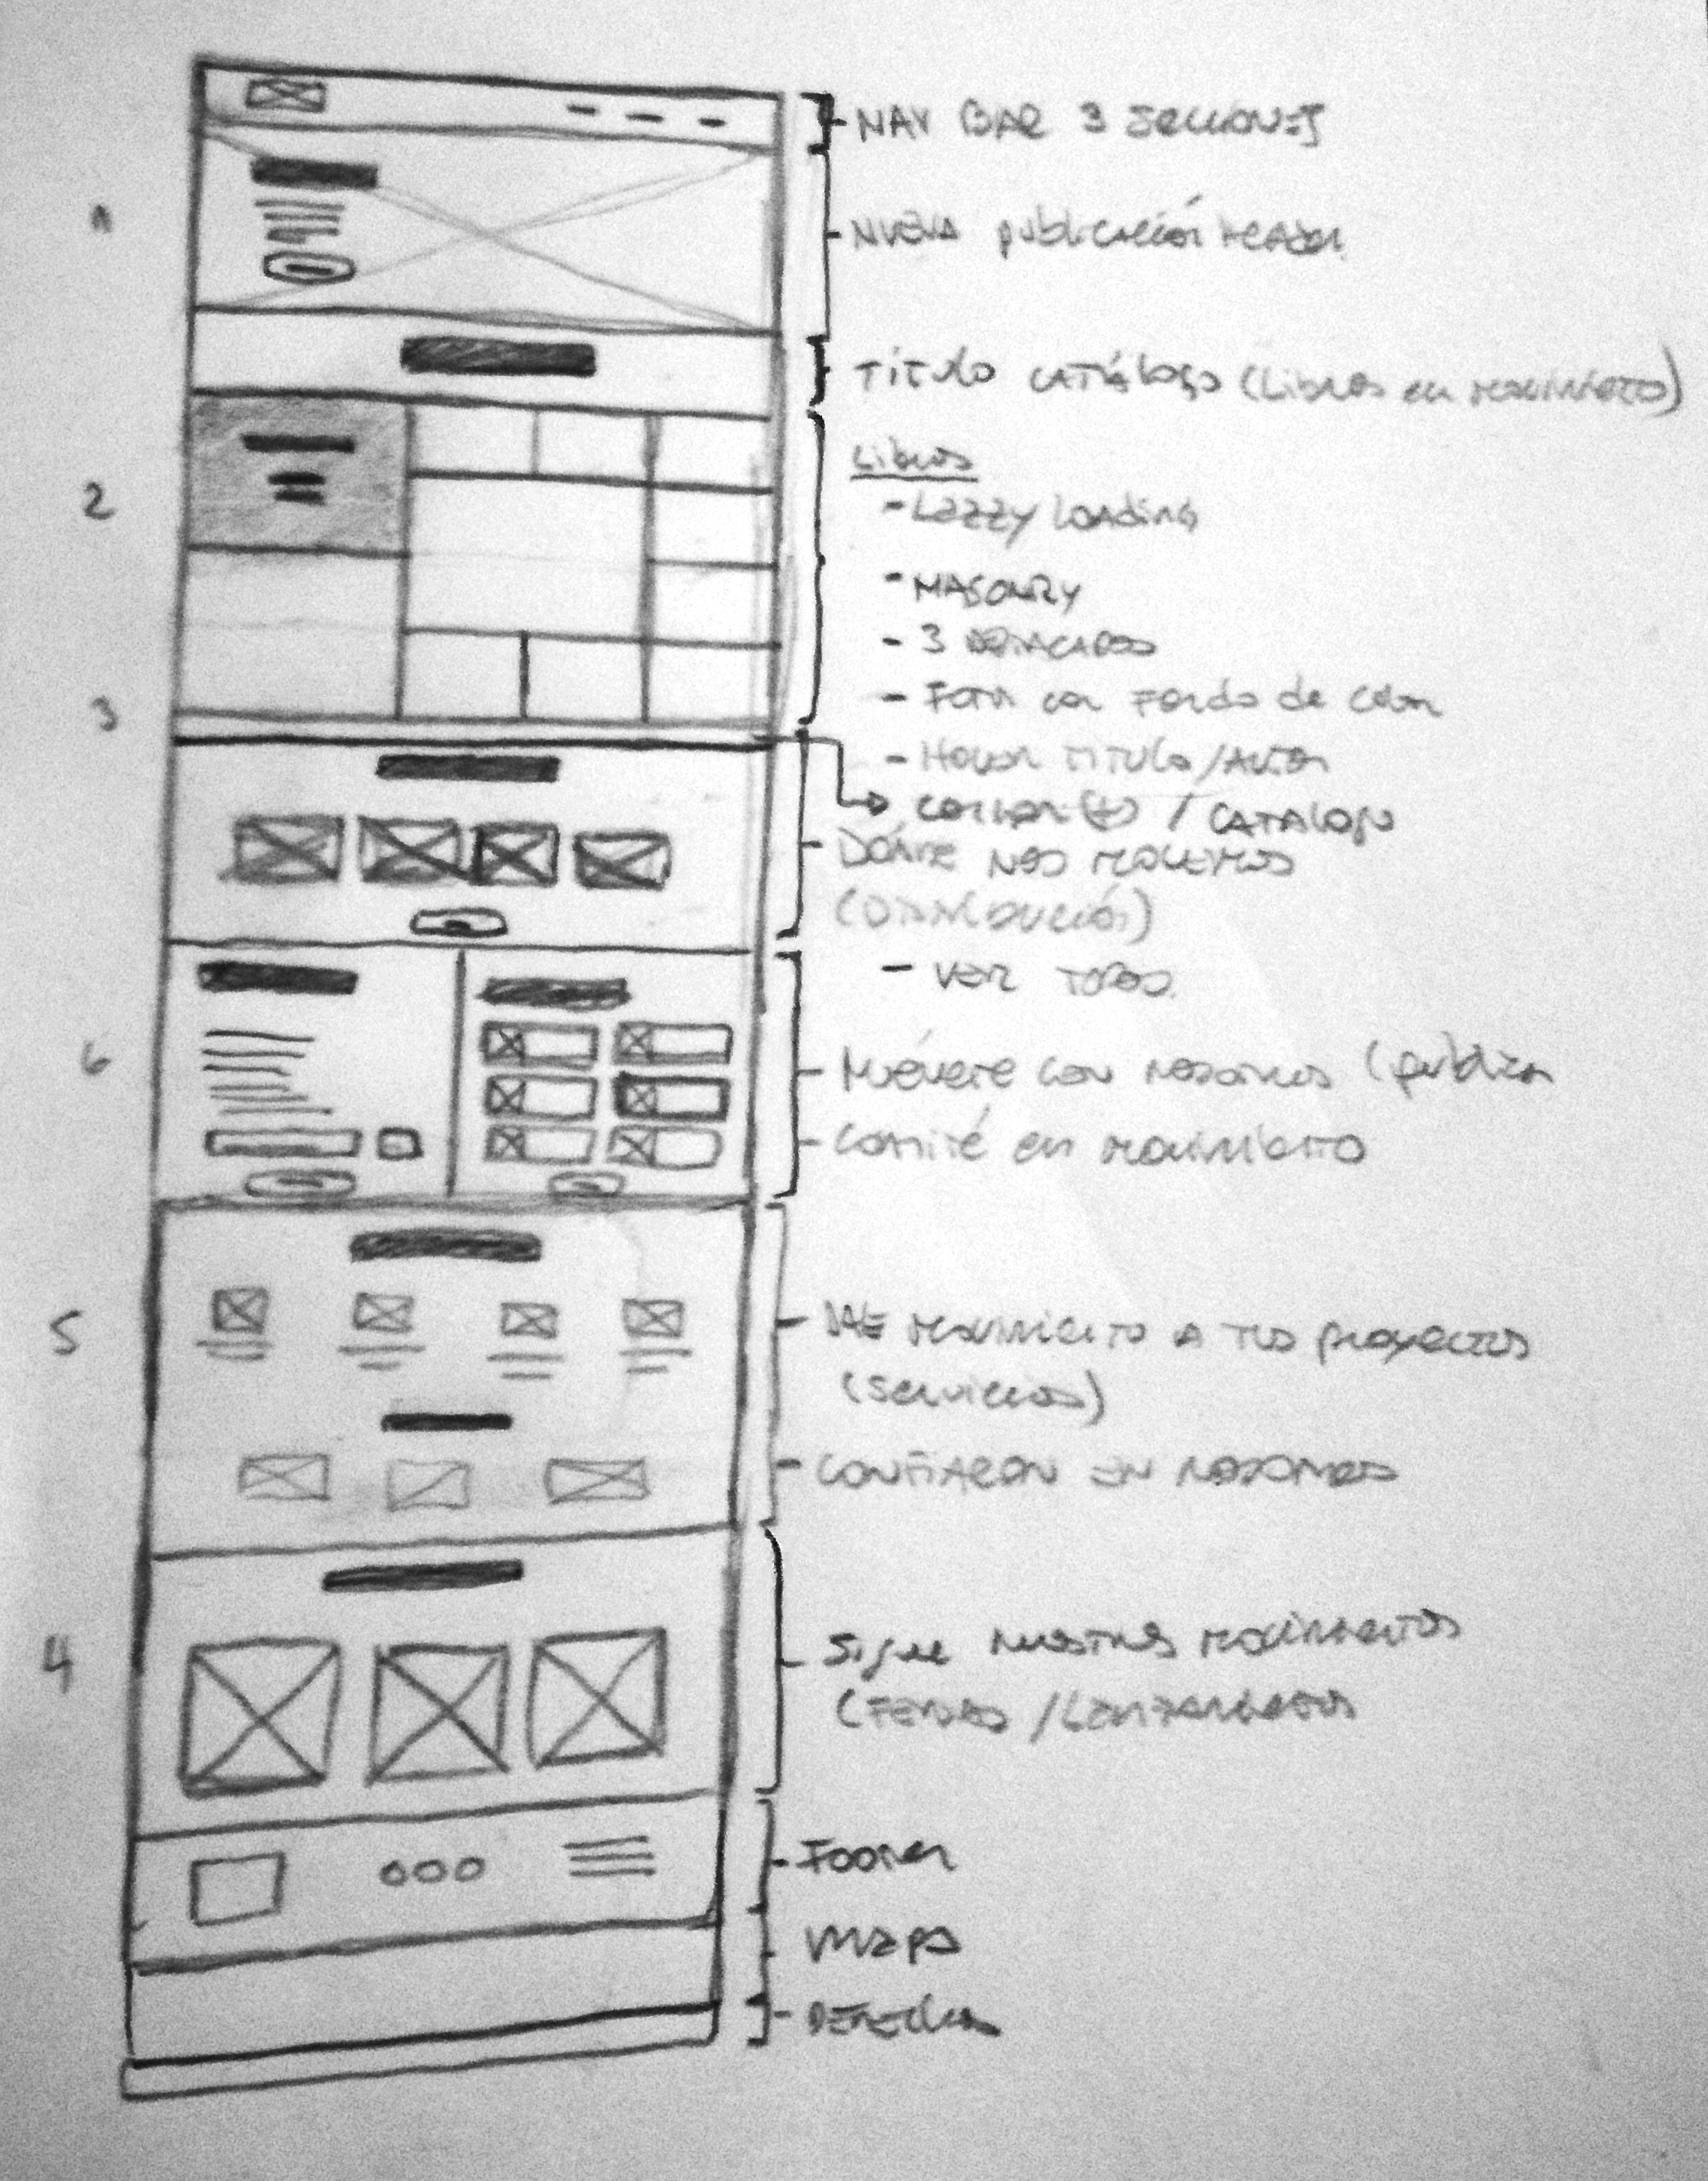 NAV BAR 3 SECCIONES
1
NUEVA publicación HEADER
TÍTULO CATÁLOGO (Libros en movimiento)
Libros
2
- Lazzy loading
- MASONRY
- 3 DESTACADOS
3
- FOTO con Fondo de Color
- HOVER TITULO / AUTOR
(+) / CATALOGO
DÓNDE NOS MOVEMOS
(DISTRIBUCIÓN)
- VER TODOS
6
Muévete con nosotros (publica
Comité en movimiento
5
DALE movimiento A TUS proyectos
(Servicios)
CONFIARON EN NOSOTROS
4
Sigue nuestros movimientos
(FERIAS / Lanzamientos
Footer
Mapa
DERECHOS